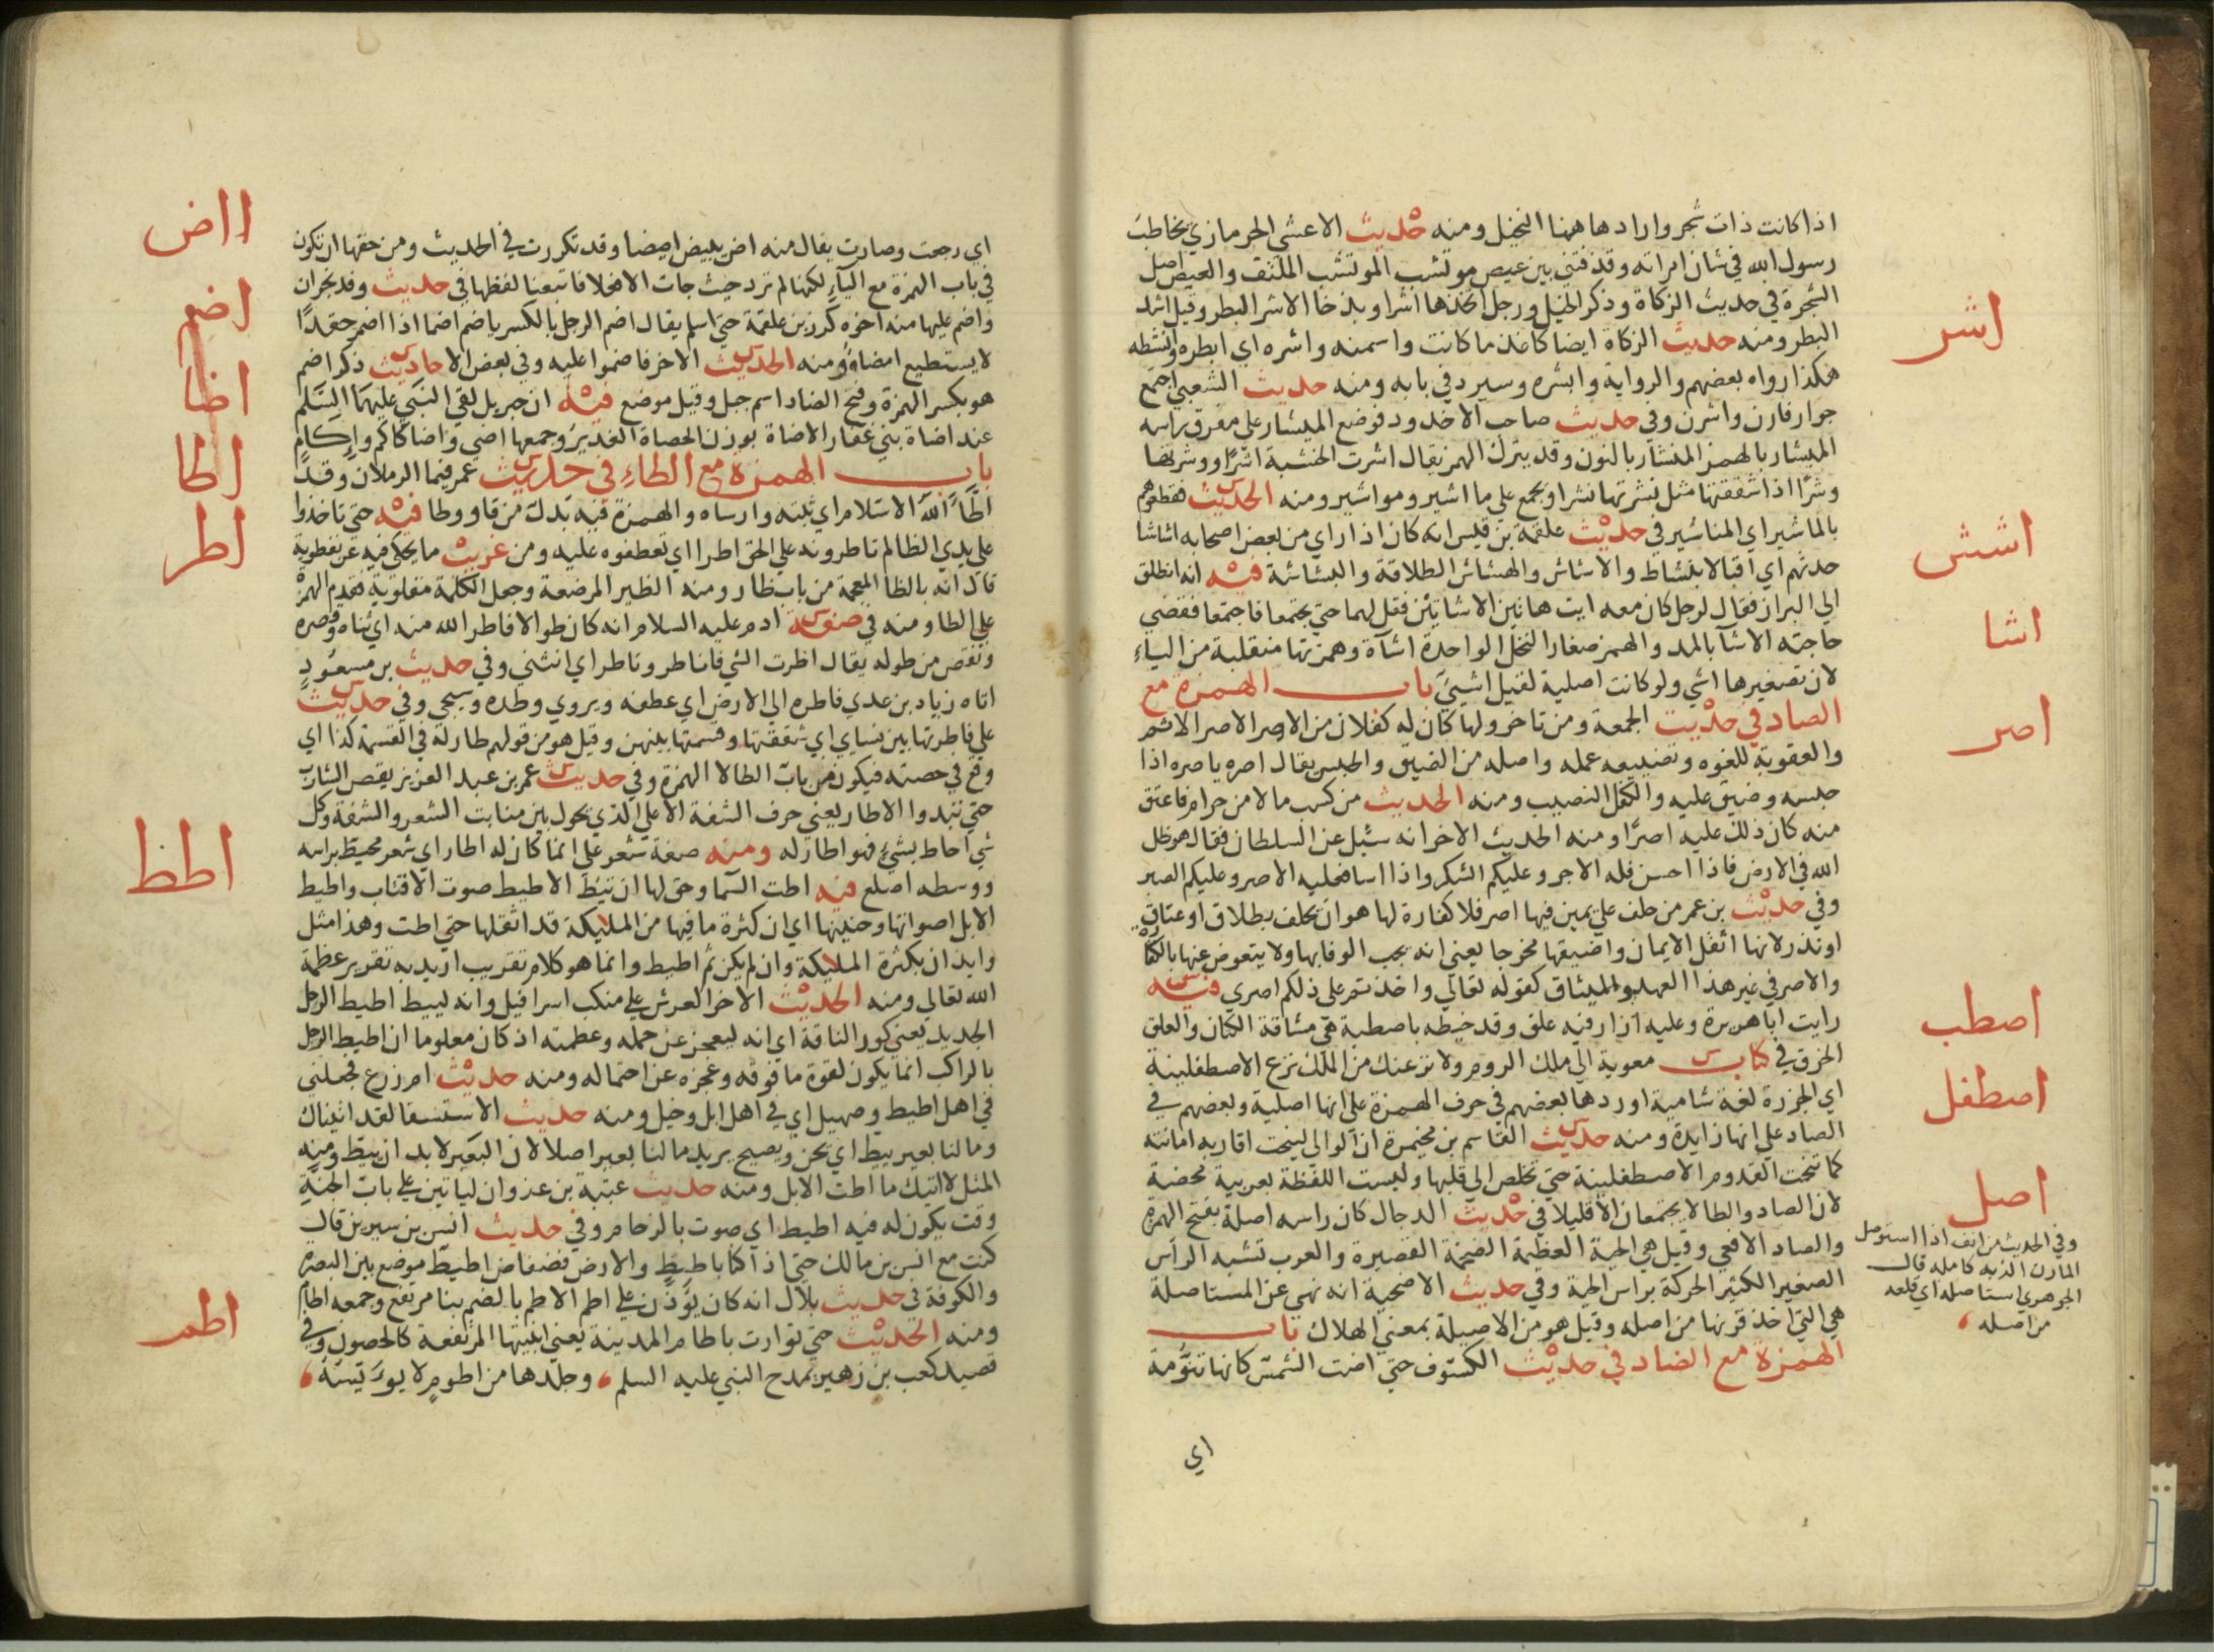 اذا كانت ذات شجر واراد هاهنا النخيل ومنه حديث الاعشي الحرمازي يخاطب
رسول الله في شان امراته وقذفتني بين عيص موتشب الموتشب الملتف والعيص اصل
الشجرة في حديث الزكاة وذكر الخيل ورجل اتخذها اشرا وبذخا الاشر البطر وقيل اشد
البطر ومنه حديث الزكاة ايضا كاغذ ما كانت واسمنه واشره اي ابطره وانشطه
هكذا رواه بعضهم والرواية وابشره وسيرد في بابه ومنه حديث الشعبي اجتمع
جوار فارن واشرن وفي حديث صاحب الاخدود فوضع الميشار علي مفرق راسه
الميشار بالهمز المنشار بالنون وقد يترك الهمز يقال اشرت الخشبة اشرًا ووشرتها
وشرًا اذا شققتها مثل نشرتها نشرا ويجمع علي ما اشير ومواشير ومنه الحديث فقطعوهم
بالماشير اي المناشير في حديث علقمة بن قيس انه كان اذا راي من بعض اصحابه اشاشا
حدثهم اي اقبالا بنشاط والاشاش والهشاش الطلاقة والبشاشة فيه انه انطلق
الي البراز فقال لرجل كان معه ايت هاتين الاشاتين فقل لهما حتي يجتمعا فاجتمعا فقضي
حاجته الاشآ بالمد والهمز صغار النخل الواحدة اشآة وهمزتها منقلبة من الياء
لان تصغيرها اشي ولو كانت اصلية لقيل اشيئ باب الهمزة مع
الصاد في حديث الجمعة ومن تاخر ولها كان له كفلان من الاصر الاصر الاثم
والعقوبة للغوه وتضييعه عمله واصله من الضيق والحبس يقال اصره ياصره اذا
حبسه وضيق عليه والكفل النصيب ومنه الحديث من كسب مالا من حرام فاعتق
منه كان ذلك عليه اصرًا ومنه الحديث الاخر انه سئل عن السلطان فقال هو ظل
الله في الارض فاذا احسن فله الاجر وعليكم الشكر واذا اسا فعليه الاصر وعليكم الصبر
وفي حديث بن عمر من حلف علي يمين فيها اصر فلا كفارة لها هو ان يحلف بطلاق او عتاق
او نذر لانها اثقل الايمان واضيقها مخرجا يعني انه يجب الوفا بها ولا يتعوض عنها بالكفا
والاصر في غير هذا العهد والميثاق كقوله تعالي واخذتم علي ذلكم اصري فيه
رايت ابا هريرة وعليه ازار فيه علق وقد خيطه باصطبة هي مشاقة الكتان والعلق
الخرق في كتاب معوية الي ملك الروم ولانزعنك من الملك نزع الاصطفلينة
اي الجزرة لغة شامية اوردها بعضهم في حرف الهمزة علي انها اصلية وبعضهم في
الصاد علي انها زايدة ومنه حديث القاسم بن مخيمرة ان الوالي لينحت اقاربه امانته
كما تنحت القدوم الاصطفلينة حتي تخلص الي قلبها وليست اللفظة بعربية محضة
لان الصاد والطا لا يجتمعان الا قليلا في حديث الدجال كان راسه اصلة بفتح الهمزة
والصاد الافعي وقيل هي الحية العظيمة الضخمة القصيرة والعرب تشبه الراس
الصغير الكثير الحركة براس الحية وفي حديث الاضحية انه نهي عن المستاصلة
هي التي اخذ قرنها من اصله وقيل هو من الاصيلة بمعني الهلاك باب
الهمزة مع الضاد في حديث الكسوف حتي اضت الشمس كانها تنومة
اي
اشر
اشش
اشا
اصر
اصطب
اصطفل
اصل
وفي الحديث من انف اذا استوصل
المارن الديه كامله قال
الجوهري استاصله اي قلعه
من اصله
اي رجعت وصارت يقال منه اض يئيض ايضا وقد تكررت في الحديث ومن حقها ان تكون
في باب الهمزة مع اليآء لكنها لم ترد حيث جات الا فعلا فاتبعنا لفظها في حديث وفد نجران
واضم عليها منه اخوه كرز بن علقمة حتي اسلم يقال اضم الرجل بالكسر ياضم اضما اذا اضمر حقدًا
لا يستطيع امضاؤه ومنه الحديث الاخر فاضموا عليه وفي بعض الاحاديث ذكر اضم
هو بكسر الهمزة وفتح الضاد اسم جبل وقيل موضع فيه ان جبريل لقي النبي عليهما السلم
عند اضاة بني غفار الاضاة بوزن الحصاة الغدير وجمعها اضي واضا كاكم واكام
باب الهمزة مع الطاء في حديث عمر فيما الرملان وقد
اطا الله الاسلام اي ثبته وارساه والهمزة فيه بدل من واو وطا فيه حتي تاخذوا
علي يدي الظالم تاطروه علي الحق اطرا اي تعطفوه عليه ومن غريب ما يحكي فيه عن نفطوية
قال انه بالظا المعجمة من باب ظار ومنه الظير المرضعة وجعل الكلمة مقلوبة فقدم الهمز
علي الظا ومنه في صفة ادم عليه السلام انه كان طوالا فاطر الله منه اي ثناه وقصره
ونقص من طوله يقال اطرت الشي فانأطر وتاطر اي انثني وفي حديث بن مسعود
اتاه زياد بن عدي فاطره الي الارض اي عطفه ويروي وطده وسيجي وفي حديث
علي فاطرتها بين نساي اي شققتها وقسمتها بينهن وقيل هو من قولهم طار له في القسمة كذا اي
وقع في حصته فيكون من باب الطا لا الهمزة وفي حديث عمر بن عبد العزيز يقص الشارب
حتي تبدوا الاطار يعني حرف الشفة الاعلي الذي يحول بين منابت الشعر والشفة وكل
شي احاط بشي فهو اطار له ومنه صفة شعر علي انما كان له اطار اي شعر محيط براسه
ووسطه اصلع فيه اطت السما وحق لها ان تئط الاطيط صوت الاقتاب واطيط
الابل اصواتها وحنينها اي ان كثرة ما فيها من المليكة قد اثقلها حتي اطت وهذا مثل
وايذان بكثرة المليكة وان لم يكن ثم اطيط وانما هو كلام تقريب اريد به تقرير عظمة
الله تعالي ومنه الحديث الاخر العرش علي منكب اسرافيل وانه ليئط اطيط الرحل
الجديد يعني كور الناقة اي انه ليعجز عن حمله وعظمته اذ كان معلوما ان اطيط الرحل
بالراكب انما يكون لقوة ما فوقه وعجزه عن احتماله ومنه حديث ام زرع فجعلني
في اهل اطيط وصهيل اي في اهل ابل وخيل ومنه حديث الاستسقا لقد اتيناك
وما لنا بعير يئط اي يحن ويصيح يريد ما لنا بعير اصلا لان البعير لا بد ان يئط ومنه
المثل لا اتيك ما اطت الابل ومنه حديث عتبة بن غزوان لياتين علي باب الجنة
وقت يكون له فيه اطيط اي صوت بالزحام وفي حديث انس بن سيرين قال
كنت مع انس بن مالك حتي اذا كنا باطيط والارض فضفاض اطيط موضع بين البصره
والكوفة في حديث بلال انه كان يؤذن علي اطم الاطم بالضم بنا مرتفع وجمعه اطام
ومنه الحديث حتي توارت باطام المدينة يعني ابنيتها المرتفعة كالحصون وفي
قصيد كعب بن زهير يمدح النبي عليه السلم وجلدها من اطوم لا يؤيسه
ااض
اضم
اضا
اطا
اطر
اطط
اطم